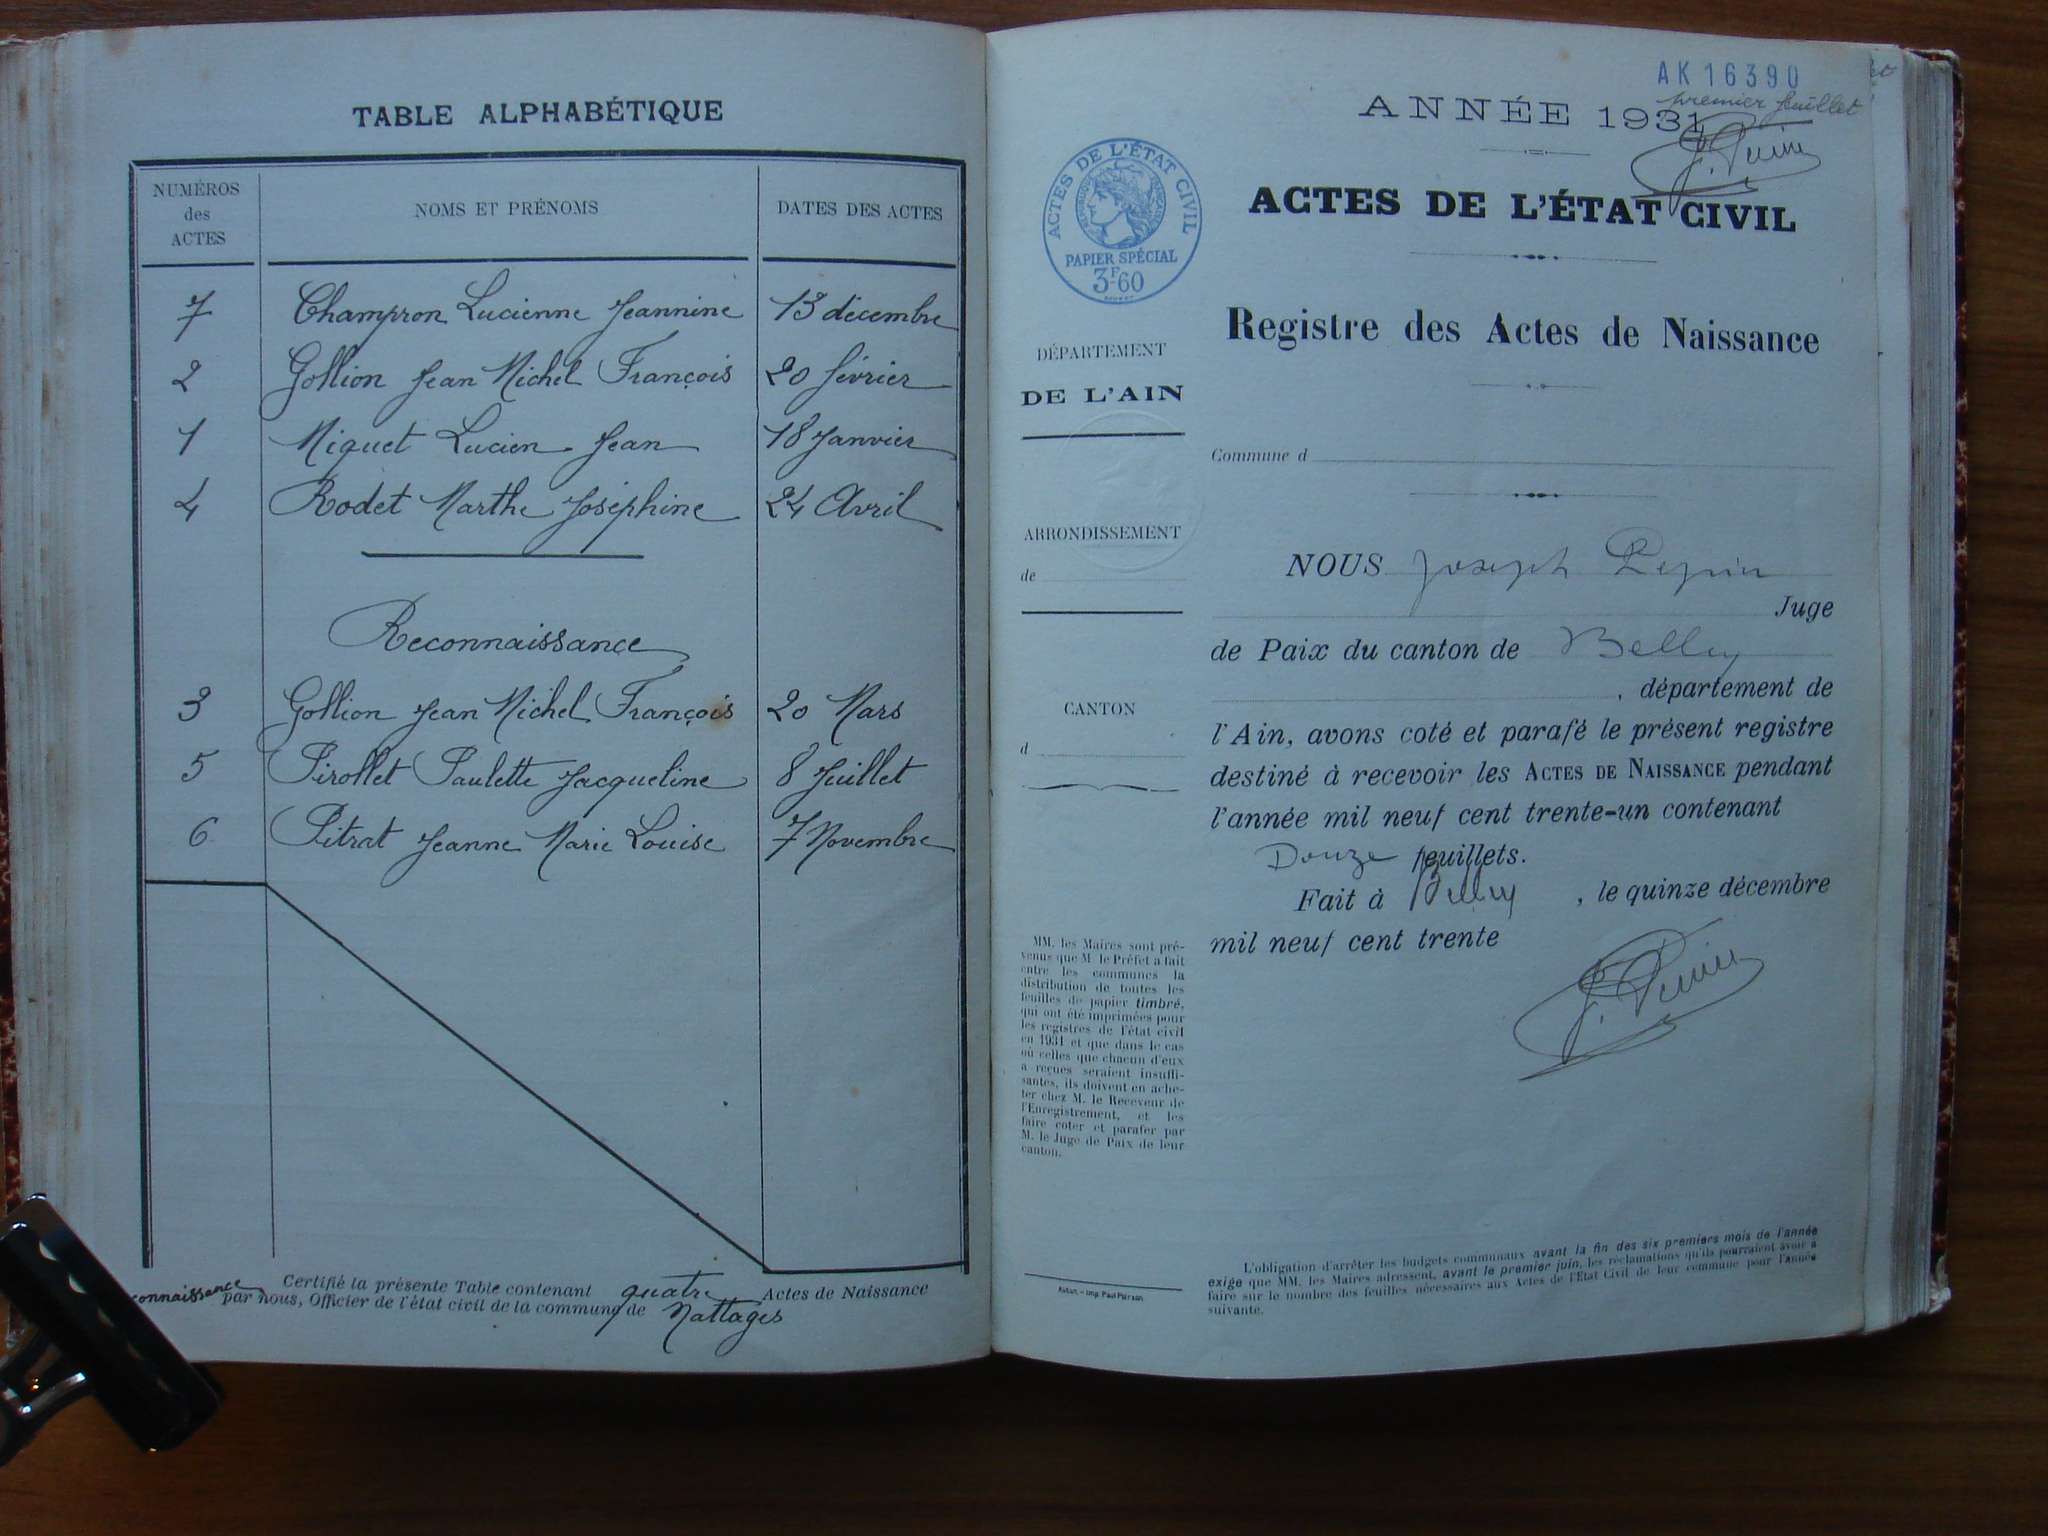 TABLE ALPHABÉTIQUE
NUMÉROS
des
ACTES
NOMS ET PRÉNOMS
DATES DES ACTES
7 Champron Lucienne Jeannine 13 décembre
2 Gollion Jean Michel François 20 février
1 Miguet Lucien Jean 18 Janvier
4 Rodet Marthe Joséphine 24 Avril
Reconnaissance
3 Gollion Jean Michel François 20 Mars
5 Pirollet Paulette Jacqueline 8 Juillet
6 Pitrat Jeanne Marie Louise 7 Novembre
connaissance
Certifié la présente Table contenant quatre Actes de Naissance
par nous, Officier de l'état civil de la commune de Nattages
AK 16390
premier feuillet
ANNÉE 1931
ACTES DE L'ÉTAT CIVIL
PAPIER SPÉCIAL
3F60
ACTES DE L'ÉTAT CIVIL
Registre des Actes de Naissance
DÉPARTEMENT
DE L'AIN
Commune d
ARRONDISSEMENT
de
CANTON
d
NOUS Joseph Pepin
Juge
de Paix du canton de Belley
, département de
l'Ain, avons coté et parafé le présent registre
destiné à recevoir les ACTES DE NAISSANCE pendant
l'année mil neuf cent trente-un contenant
Douze feuillets.
Fait à Belley , le quinze décembre
mil neuf cent trente
MM. les Maires sont pré-
venus que M. le Préfet a fait
entre les communes la
distribution de toutes les
feuilles de papier timbré,
qui ont été imprimées pour
les registres de l'état civil
en 1931 et que dans le cas
où celles que chacun d'eux
a reçues seraient insuffi-
santes, ils doivent en ache-
ter chez M. le Receveur de
l'Enregistrement, et les
faire coter et parafer par
M. le Juge de Paix de leur
canton.
L'obligation d'arrêter les budgets communaux avant la fin des six premiers mois de l'année
exige que MM. les Maires adressent, avant le premier juin, les réclamations qu'ils pourraient avoir à
faire sur le nombre des feuilles nécessaires aux Actes de l'Etat Civil de leur commune pour l'année
suivante.